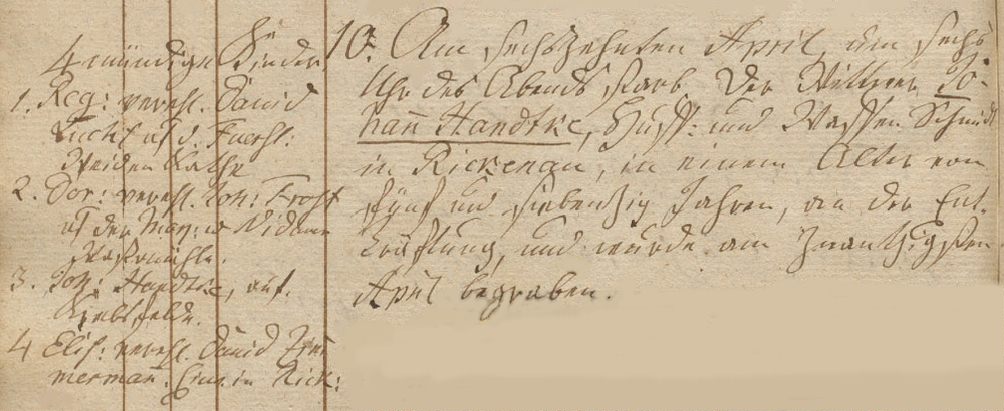 4 mündige Kinder
1. Reg: verehl. David
Lucht auf d. Fürstl:
Weiden Kathe
2. Dor: verehl. Joh: Frost
auf der
3. Joh: Handtke, auf
Krebsfelde.
4 Elis: verehl. David Zim
merman: Einw. in Rick:
10. Am sechszehnten April, um sechs
Uhr des Abends starb. Der Wittwer Jo-
hann Handtke, Huff: und Waffen Schmidt
in Rickenau, in einem Alter von
fünf und siebenzig Jahren, an der Ent-
kräftung, und wurde am zwantzigsten
April begraben.